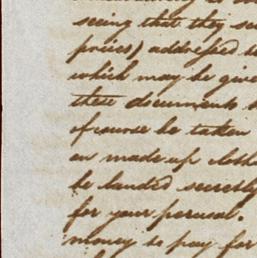 seeing that they
prices) addressed
which may be
these documents
of course be taken
on made up
be handed secretly
for your perusal.
money to pay for